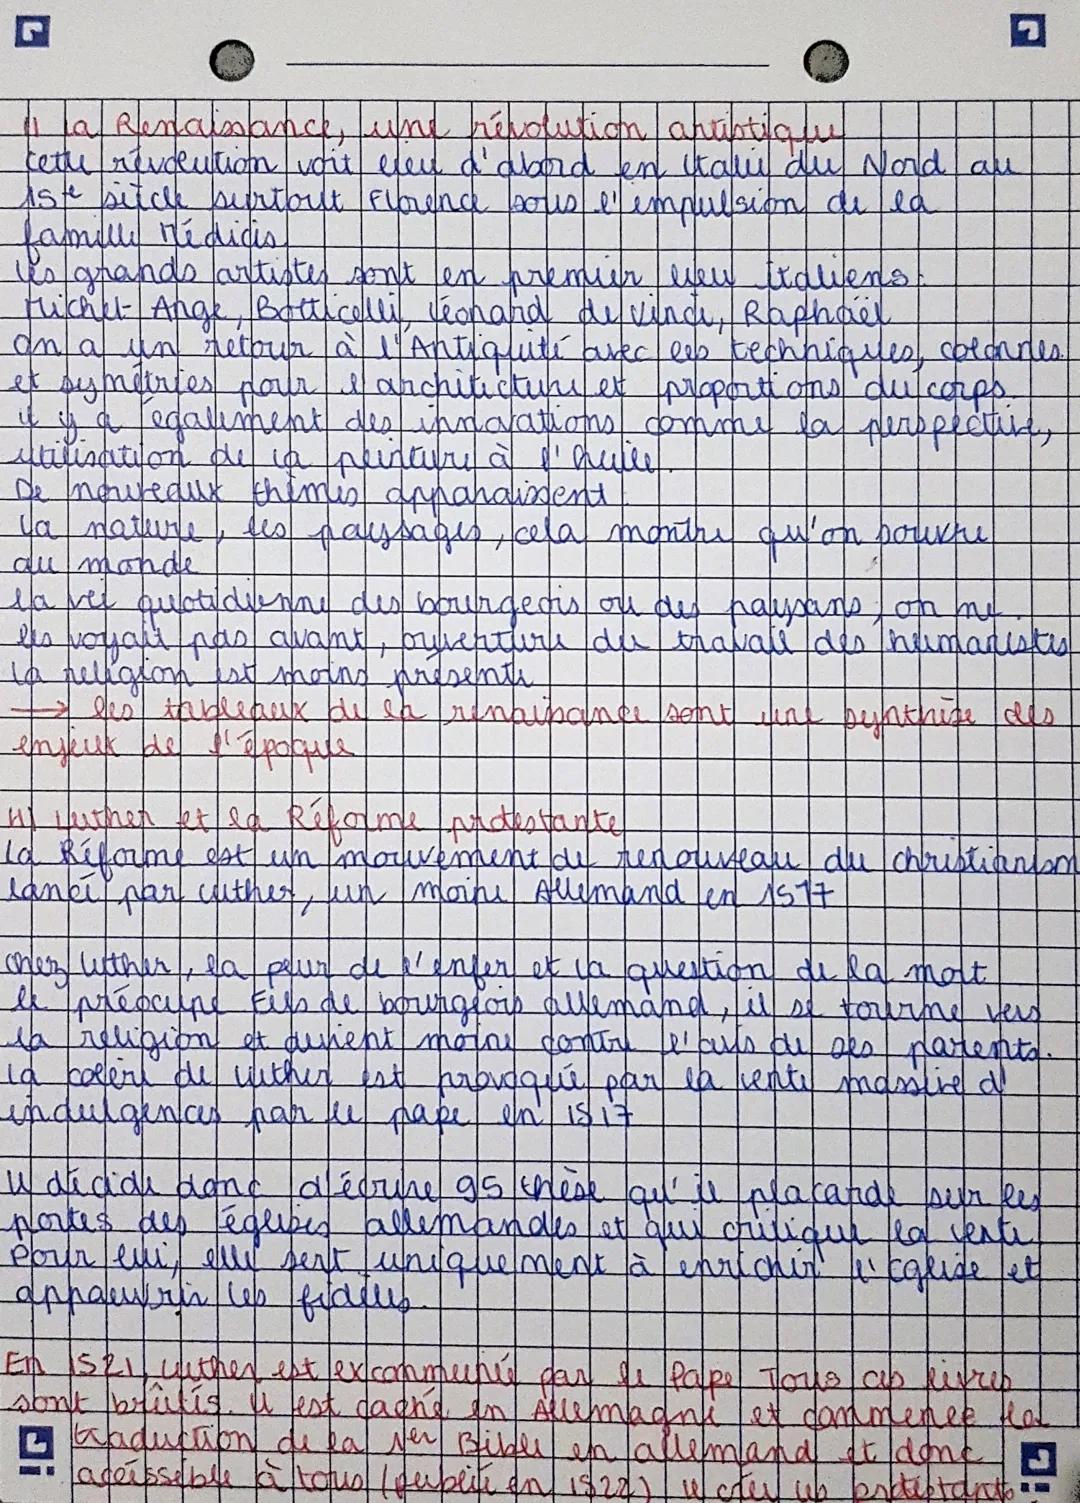 I) la Renaissance, une révolution artistique
cette révolution voit lieu d'abord en Italie du Nord au
15è siècle surtout Florence sous l'empulsion de la
famille Médicis
les grands artistes sont en premier lieu italiens:
Michel-Ange, Botticelli, Léonard de Vinci, Raphaël
on a un retour à l'Antiquité avec les techniques, colonnes
et symétries pour l'architecture et proportions du corps.
il y a également des innovations comme la perspective,
utilisation de la peinture à l'huile.
De nouveaux thèmes apparaissent
la nature, les paysages, cela montre qu'on s'ouvre
au monde
la vei quotidienne des bourgeois ou des paysans, on ne
les voyait pas avant, ouverture du travail des humanistes
la religion est moins présente
→ les tableaux de la renaissance sont une synthèse des
enjeux de l'époque
II) Luther et la Réforme protestante
la Réforme est un mouvement de renouveau du christianism
lancé par Luther, un moine Allemand en 1517
chez Luther, la peur de l'enfer et la question de la mort
le préocupe Fils de bourgeois allemand, il se tourne vers
la religion et devient moine contre l'avis de ses parents.
la colère de Luther est provoquée par la vente massive d'
indulgences par le pape en 1517
Il décide donc d'écrire 95 thèse qu'il placarde sur les
portes des églises allemandes et qui critique la vente
Pour lui, elle sert uniquement à enrichir l'Eglise et
appauvrir les fidèles.
En 1521, Luther est excommunié par le Pape Tous ces livres
sont brûlés. Il est caché en Allemagne et commence la
traduction de la 1er Bible en allemand et donc
accissible à tous (publié en 1522) il crée les protestants